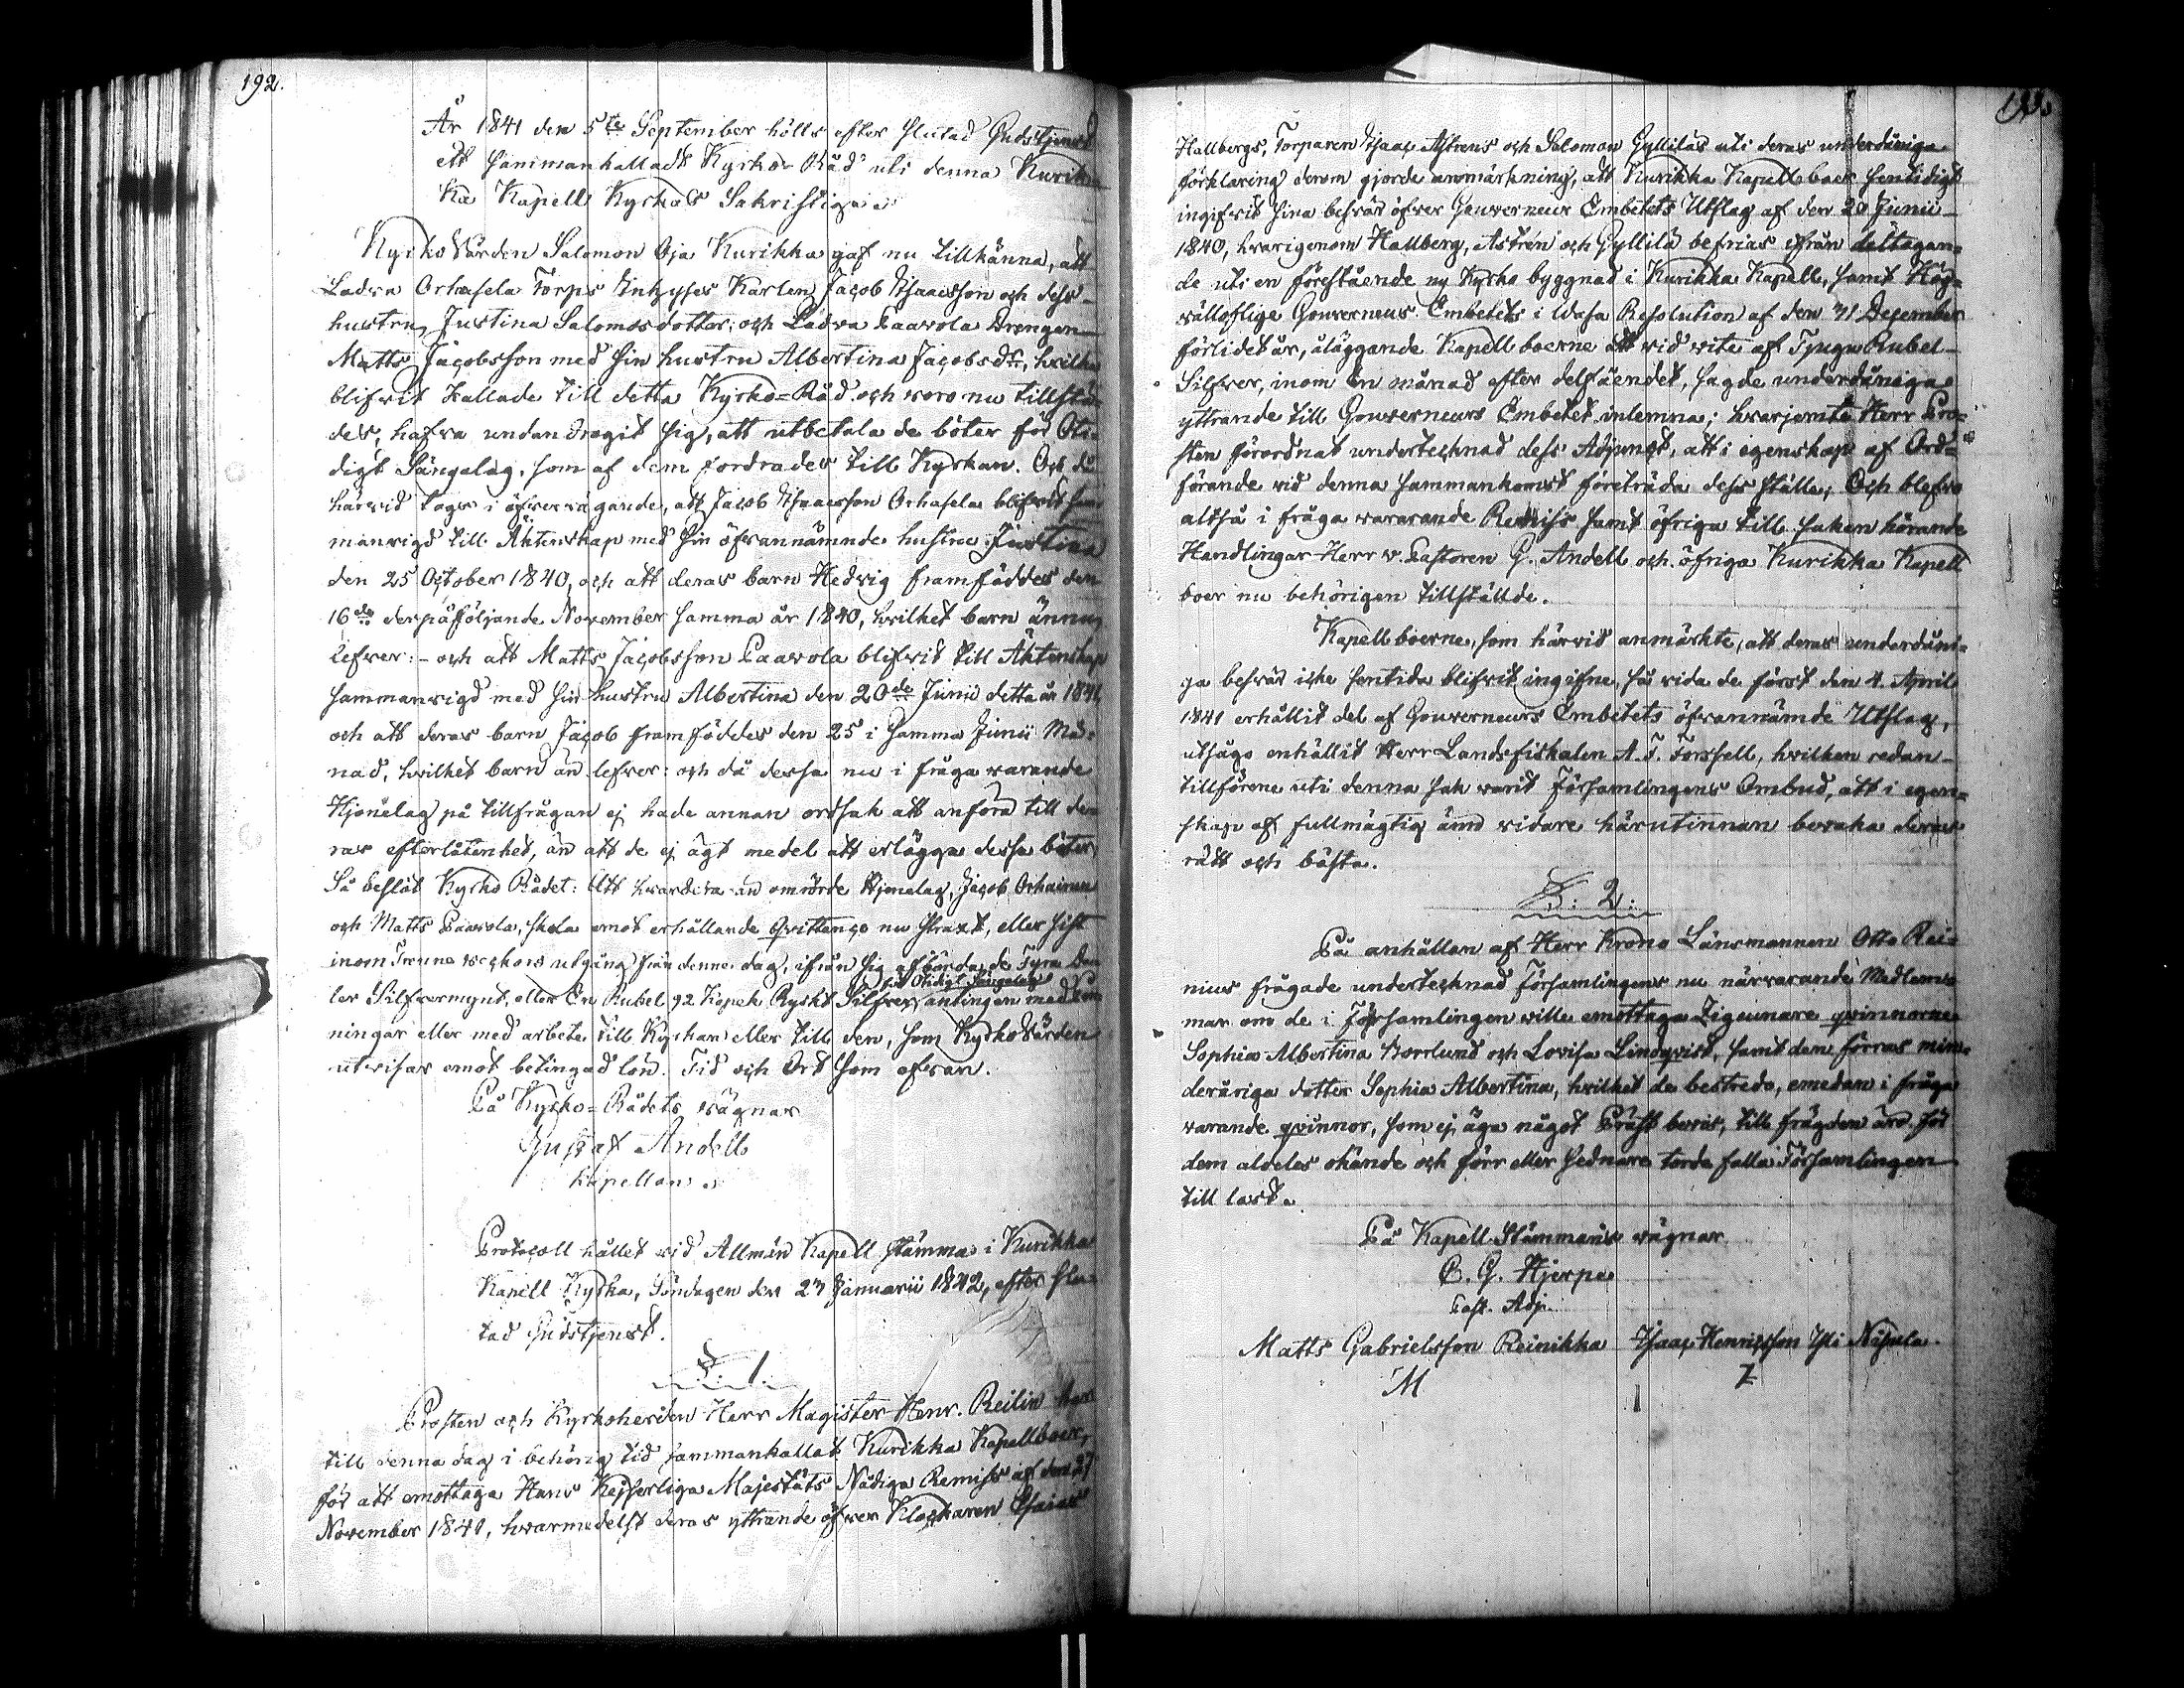 192.
År 1841 den 5te September hölls efter slutad Gudstjenst
ett sammankalladt Kyrko-Råd uti denna Kurik-
ka Kapells Kyrkas Sakristiga.
KyrkoVärden Salomon Oja Kurikka gaf nu tillkänna, att
Ladva Orhasela Torps Inhyses Karlen Jacob Isaacsson och dess
hustru Justina Salomosdotter; och Ladva Paavola Drengen
Matts Jacobsson med sin hustru Albertina Jacobsdr, hvilka
blifvit kallade till detta Kyrko-Råd och voro nu tillstä-
des, hafva undandragit sig, att utbetala de böter för Oti-
digt Sängalag, som af dem fordrades till Kyrkan. Och då
härvid toges i öfvervägande, att Jacob Isaacsson Orhasela blifvit sam-
manvigd till Äktenskap med sin ofvannämnde hustru Justina
den 25 October 1840, och att deras barn Hedvig framföddes den
16de derpåföljande November samma år 1840, hvilket barn ännu
lefver: - och att Matts Jacobsson Paavola blifvit till Äktenskap
sammanvigd med sin hustru Albertina den 20de Junii detta år 1841,
och att deras barn Jacob framföddes den 25 i samma Junii Må-
nad, hvilket barn än lefver: och då dessa nu i fråga varande
Hjonelag på tillfrågan ej hade annan orsak att anföra till de-
ras efterlåtenhet, än att de ej ägt medel att erlägga dessa böter,
Så beslöt Kyrko Rådet: Att hvardera än omrörde Hjonelag, Jacob
och Matts Paavola, skola emot erhållande qvittence nu straxt, eller sist
inom Trenne veckors utgång från denne dag, ifrån sig afbörda de Tyra Da-
för Otidigt Sängelag
ler Silfvermynt, eller En Rubel 92 Kopek Ryskt Silfver, antingen med
ningar eller med arbete till Kyrkan eller till den, som KyrkoVärden
utvisar emot betingad lön. Tid och Ort som ofvan.
På Kyrko-Rådets vägnar
Gustaf Andell
Kapellan.
Protocoll hållet vid Allmän Kapell stämma i Kurikka
Kapell Kyrka, Söndagen den 23 Januarii 1842, efter slu-
tad Gudstjenst.
§. 1.
Prosten och Kyrkoherden Herr Magister Henr. Reilin
till denna dag i behörig tid sammankallat Kurikka Kapellboer,
för att emottaga Hans Kejserliga Majestäts Nådiga Remiss af den 27
November 1841, hvarmedelst deras yttrande öfver Klockaren Esaias
Hallbergs, Torparen Isaac Astrens och Salomon Gyllilas uti deras underdåniga
förklaring derom gjorde anmärkning, att Kurikka Kapellboer sentidigt
ingifvit sina besvär öfver Gouverneurs Embetets Utslag af den 20 Junii
1840, hvarigenom Hallberg, Astrén och Gyllilä befrias ifrån deltagan-
de uti en förestående ny Kyrko byggnad i Kurikka Kapell, samt Hög-
välloflige Gouverneurs Embetets i Wasa Resolution af den 31 December
förlidet år, åläggande Kapellboerne att vid vite af Tjugu Rubel
Silfver, inom En månad efter delfåendet, sagde underdåniga
yttrande till Gouverneurs Embetet inlemna; hvarjemte Herr Pro-
sten förordnat undertecknad dess Adjunct, att i egenskap af Ord-
förande vid denna sammankomst företräda dess ställe; Och blefvo
altså i fråga vararande Remiss samt öfriga till saken hörande
Handlingar Herr v. Pastoren G. Andell och öfriga Kurikka Kapell
boer nu behörigen tillställde.
Kapellboerne, som härvid anmärkte, att deras underdåni-
ga besvär icke sentida blifvit ingifne, så vida de först den 4. April
1841 erhållit del af Gouverneurs Embetets ofvannämde Utslag,
utsågo enhällit Herr Landsfiskalen A. F. Forssell, hvilken redan
tillförene uti denna sak varit Församlingens Ombud, att i egen-
skap af fullmägtig än vidare härutinnan bevaka deras
rätt och bästa.
§: 2:
På anhållan af Herr Krono Länsmannen Otto Rei-
nius frågade undertecknad Församlingens nu närvarande Medlem-
mar om de i Församlingen ville emottaga Zigeunare qvinnorne
Sophia Albertina Borrlund och Lovisa Lindqvist, samt den förras min-
deråriga dotter Sophia Albertina, hvilket de bestredo, emedan i fråga
varande qvinnor, som ej äga något Präst bevis, till frägden äro för
dem aldeles okände och förr eller sednare torde falla Församlingen
till last.
På Kapell-Stämmans vägnar
C. G. Hjerpe
Past. Adj.
Matts Gabrielsson Reinikka Isaac Henricsson Yli Näpula
M